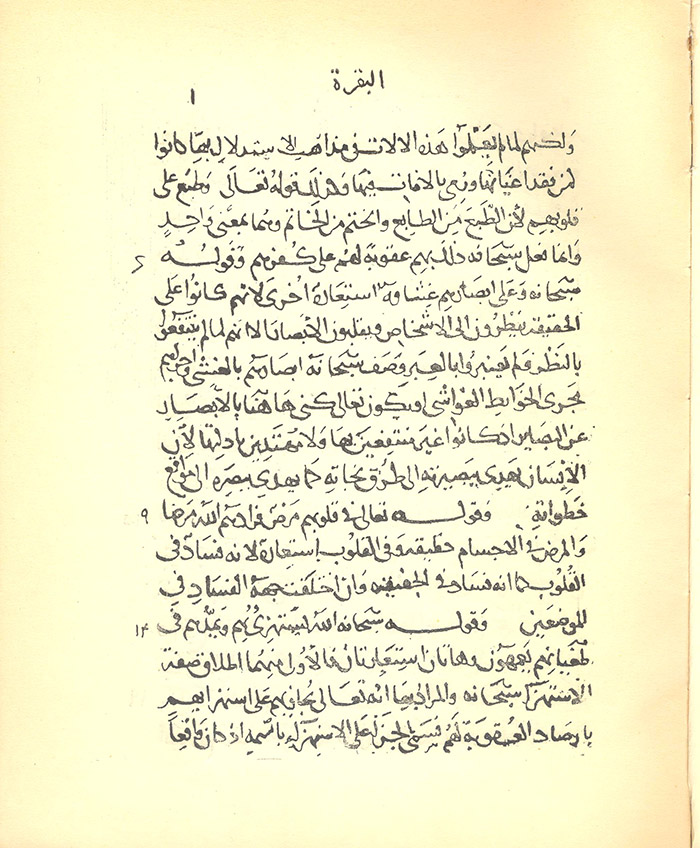 البقرة
١
ولكنهم لما لم يعملوا هذه الالات في مذاهب الاستدلال بها كانوا
كمن فقد اعيانها ورمي بالافات فيها وكذلك قوله تعالى وطبع على
قلوبهم لأن الطبع من الطابع والختم من الخاتم وهما بمعنى واحد
وانما فعل سبحانه ذلك بهم عقوبة لهم على كفرهم وقوله
سبحانه وعلى ابصارهم غشاوة استعارة اخرى لانهم كانوا على
الحقيقة ينظرون الى الاشخاص ويقلبون الأبصار الا انهم لما لم ينتفعوا
بالنظر ولم يعتبروا بالعبر وصف سبحانه ابصارهم بالغشي واجراهم
مجرى الخوابط الغواشي او يكون تعالى كنى هاهنا بالأبصار
عن البصاير اذ كانوا غير منتفعين بها ولا مهتدين بادلتها لأن
الإنسان يهدي ببصيرته الى طرق نجاته كما يهدي ببصره الى مواقع
خطواته وقوله تعالى في قلوبهم مرض فزادهم الله مرضا ٩
والمرض في الاجسام حقيقة وفي القلوب استعارة لانه فساد في
القلوب كما انه فساد في الحقيقة وان اختلفت جهة الفساد في
الموضعين وقوله سبحانه الله يستهزئ بهم ويمدهم في ١٤
طغيانهم يعمهون وهاتان استعارتان فالأولى منهما اطلاق صفة
الاستهزاء سبحانه والمراد بها انه تعالى يجازيهم على استهزايهم
بارصاد العقوبة لهم فسمى الجزاء على الاستهزاء باسمه اذ كان واقعاً